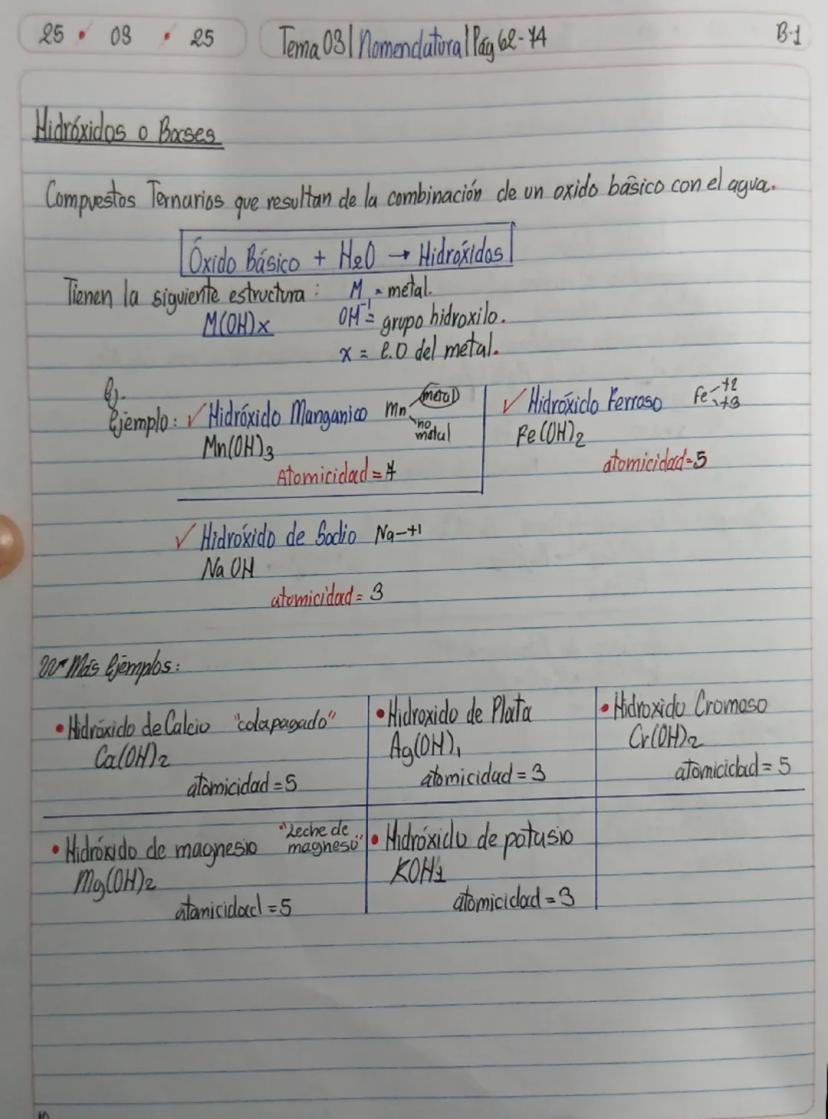 25 • 03 • 25
Tema 03 | Nomenclatura | Pág 62-74
B-1
Hidróxidos o Bases
Compuestos Ternarios que resultan de la combinación de un oxido básico con el agua.
Óxido Básico + H2O → Hidróxidos
Tienen la siguiente estructura: M = metal.
M(OH)x OH⁻¹ = grupo hidroxilo.
x = e.O del metal.
Ej.
Ejemplo: ✓ Hidróxido Manganico Mn metal no metal
Mn(OH)3
Atomicidad = 7
✓ Hidróxido Ferroso Fe +2 +3
Fe(OH)2
atomicidad = 5
✓ Hidróxido de Sodio Na → +1
Na OH
atomicidad = 3
Más Ejemplos:
• Hidróxido de Calcio "cal apagado"
Ca(OH)2
atomicidad = 5
• Hidroxido de Plata
Ag(OH)1
atomicidad = 3
• Hidroxido Cromoso
Cr(OH)2
atomicidad = 5
• Hidróxido de magnesio "Leche de magneso"
Mg(OH)2
atomicidad = 5
• Hidróxido de potasio
KOH1
atomicidad = 3